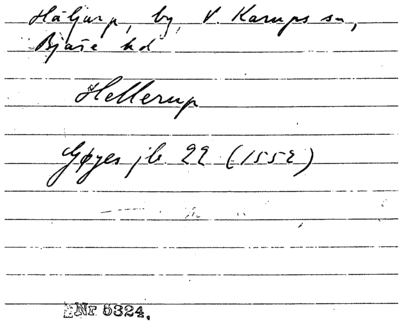 Håljarp, by, V. Karups sn,
Bjäre hd
Hellerup
Gøyes jb 22 (1552)
Nr 5324.